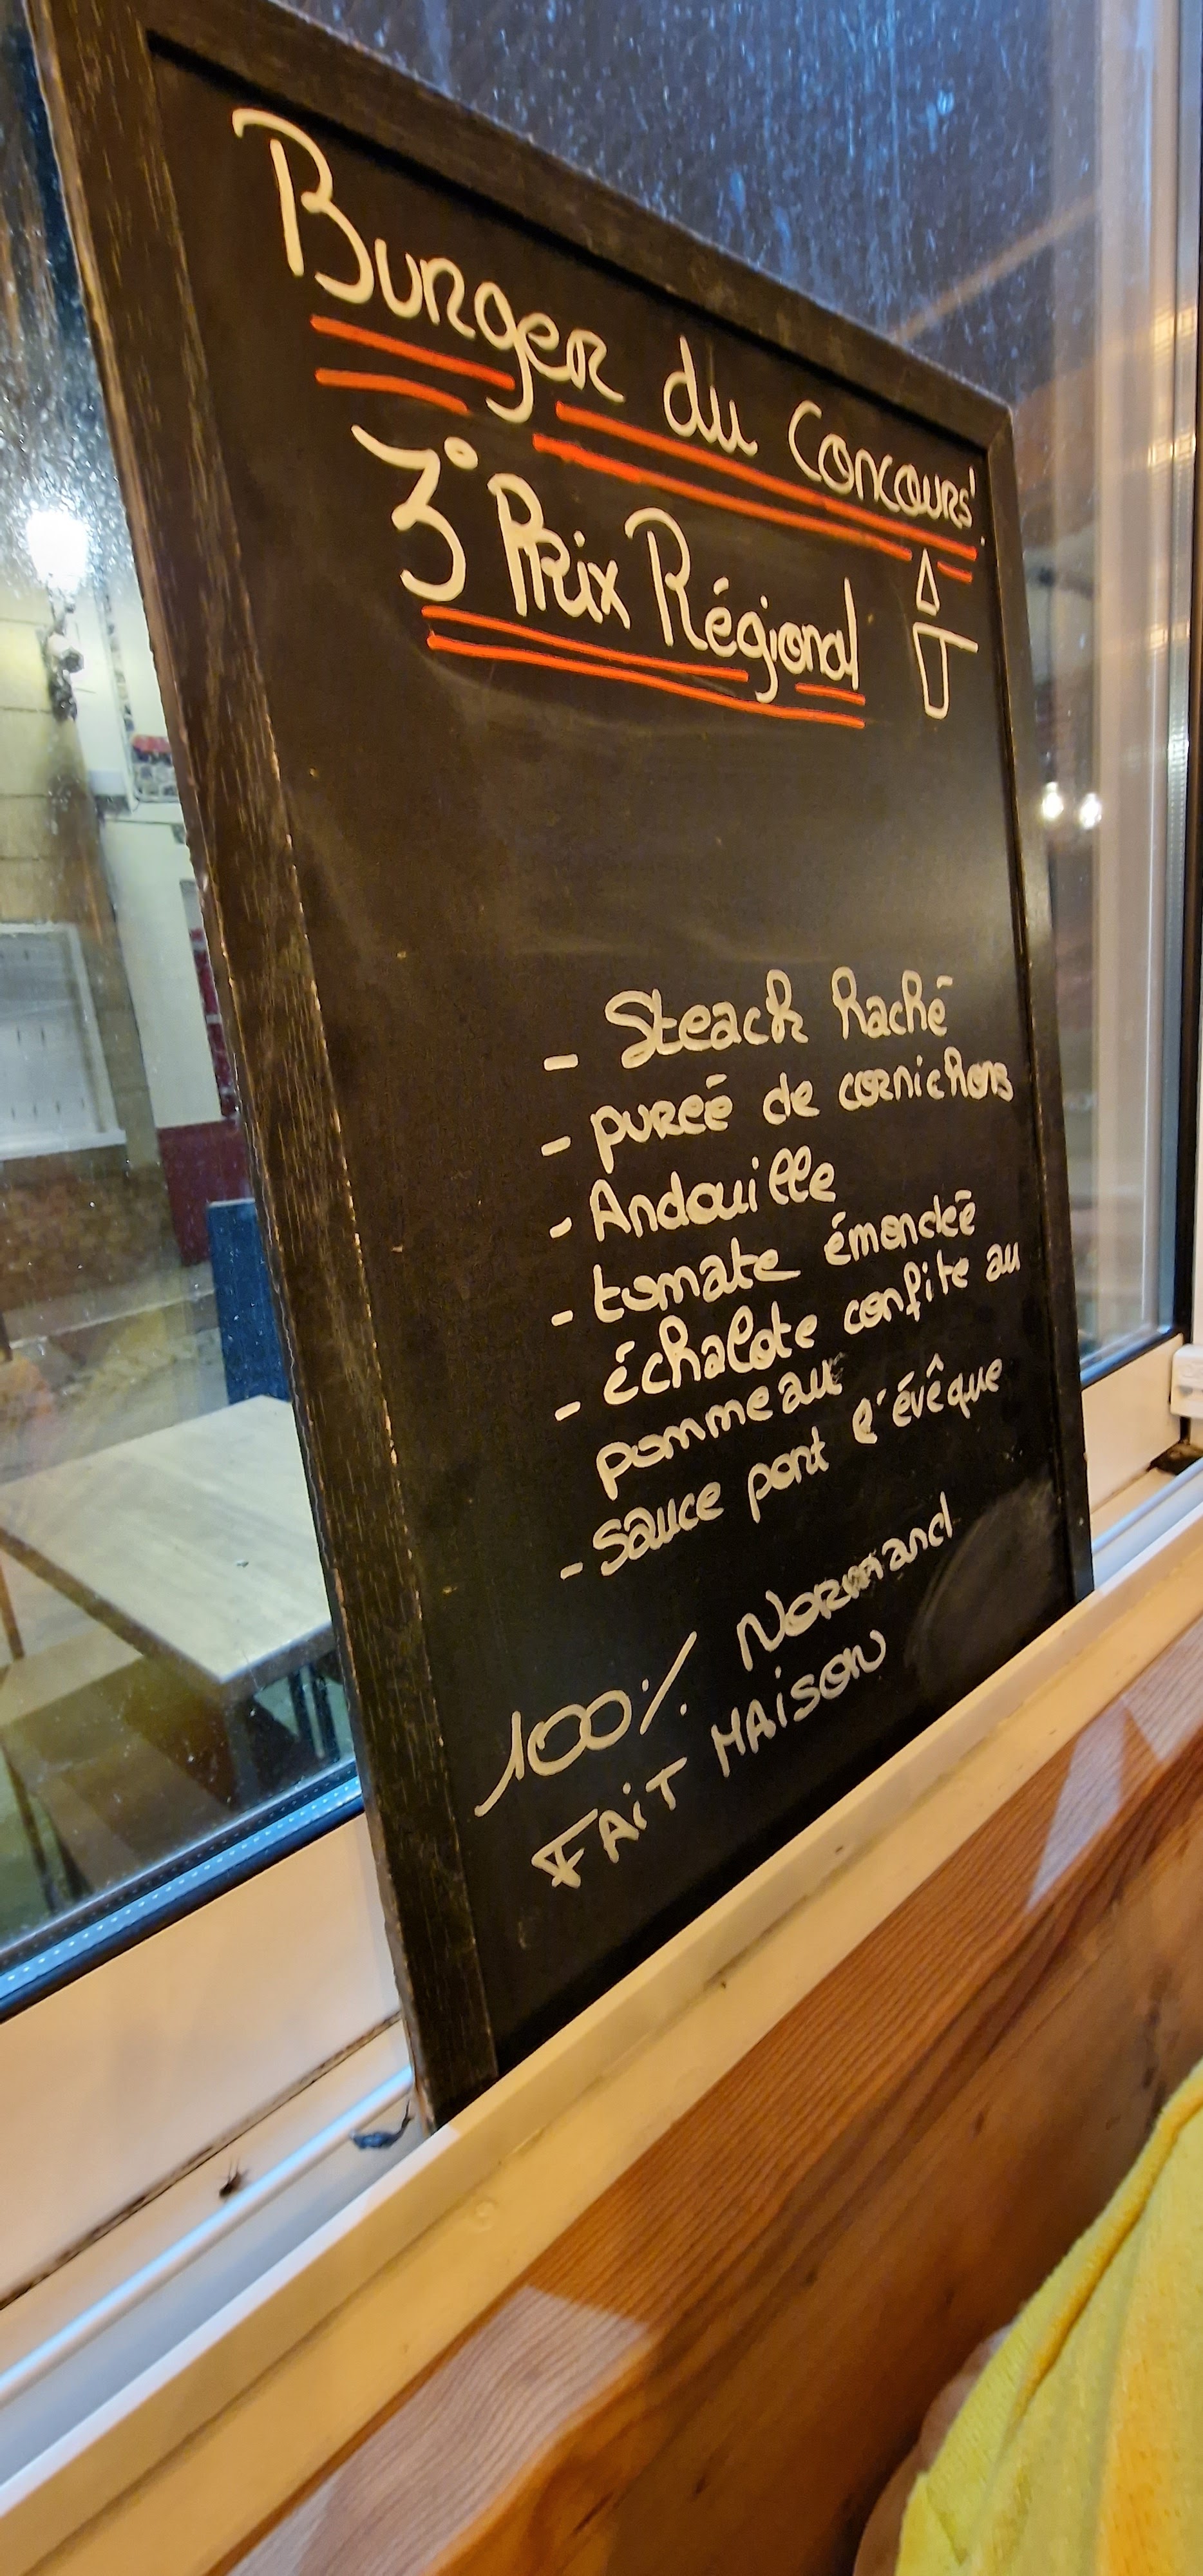 Burger du Concours!
3° Prix Régional
- Steack haché
- pureé de cornichons
- Andouille
- tomate émondéé
- échalote confite au
pommeau
- sauce pont l'évêque
100% Normand
FAiT MAiSON